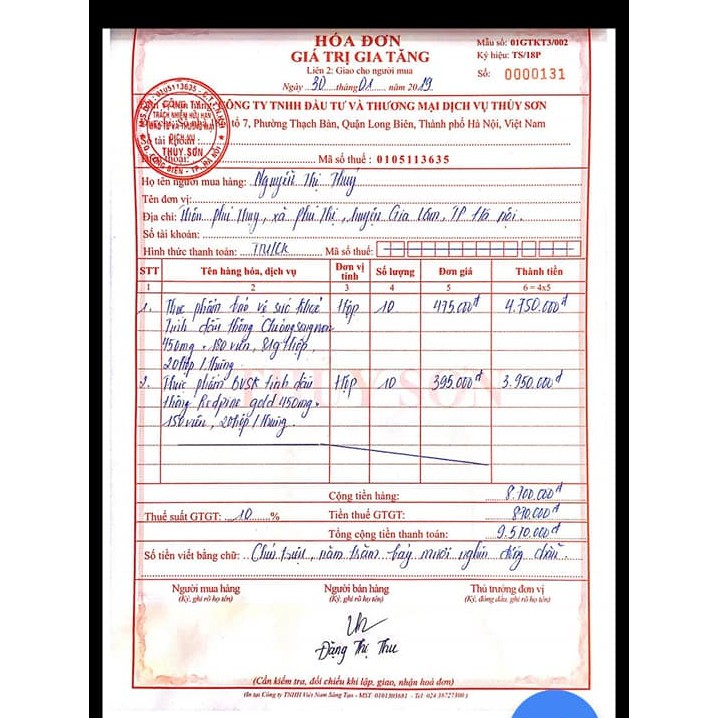 HÓA ĐƠN
GIÁ TRỊ GIA TĂNG
Liên 2: Giao cho người mua
Ngày 30 tháng 01 năm 2019
Mẫu số: 01GTKT3/002
Ký hiệu: TS/18P
Số: 0000131
CÔNG TY TNHH ĐẦU TƯ VÀ THƯƠNG MẠI DỊCH VỤ THỦY SƠN
tổ 7, Phường Thạch Bàn, Quận Long Biên, Thành phố Hà Nội, Việt Nam
Số tài khoản
Mã số thuế : 0105113635
THỦY SƠN
Họ tên người mua hàng: Nguyễn Thị Thuý
Tên đơn vị:
Địa chỉ: Thôn Phú Thụy, xã Phú Thị, huyện Gia Lâm, TP Hà Nội.
Số tài khoản:
Hình thức thanh toán: TM/CK Mã số thuế:
STT Tên hàng hóa, dịch vụ Đơn vị tính Số lượng Đơn giá Thành tiền
1 2 3 4 5 6 = 4x5
1. Thực phẩm bảo vệ sức khoẻ Hộp 10 475.000đ 4.750.000đ
Tinh dầu thông
450mg * 180 viên, 81g/hộp,
20 hộp / thùng
2. Thực phẩm BVSK tinh dầu Hộp 10 395.000đ 3.950.000đ
thông Redpine gold 450mg *
150 viên, 20 hộp / thùng.
THỦY SƠN
Cộng tiền hàng: 8.700.000đ
Thuế suất GTGT: 10 % Tiền thuế GTGT: 870.000đ
Tổng cộng tiền thanh toán: 9.570.000đ
Số tiền viết bằng chữ: Chín triệu, năm trăm bảy mươi nghìn đồng chẵn.
Người mua hàng Người bán hàng Thủ trưởng đơn vị
(Ký, ghi rõ họ tên) (Ký, ghi rõ họ tên) (Ký, đóng dấu, ghi rõ họ tên)
Đặng Thị Thu
(Cần kiểm tra, đối chiếu khi lập, giao, nhận hoá đơn)
(In tại Công ty TNHH Việt Nam Sáng Tạo - MST: 0101303681 - Tel: 024 38727300 )